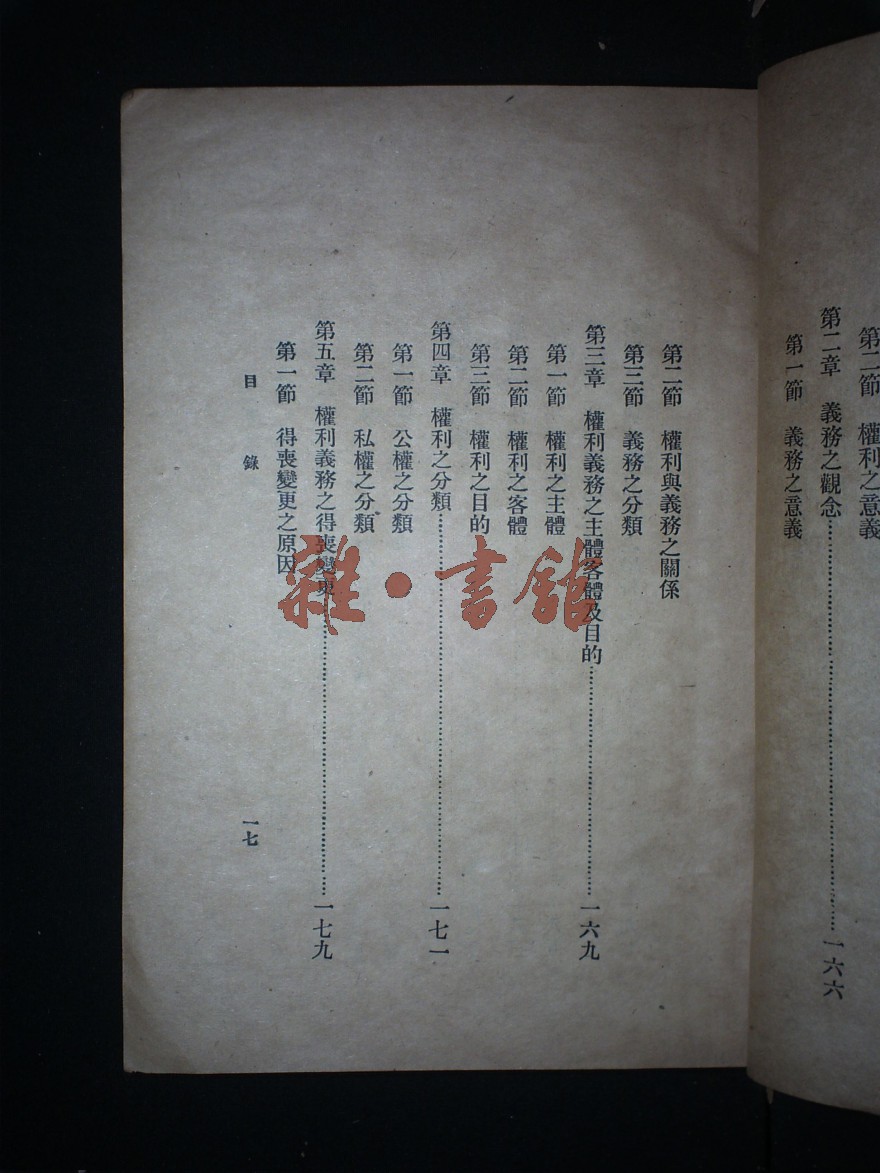 第二節　權利之意義
第二章　義務之觀念……………………一六六
第一節　義務之意義
第二節　權利與義務之關係
第三節　義務之分類
第三章　權利義務之主體客體及目的……………………一六九
第一節　權利之主體
第二節　權利之客體
第三節　權利之目的
第四章　權利之分類……………………一七一
第一節　公權之分類
第二節　私權之分類
第五章　權利義務之得喪變更……………………一七九
第一節　得喪變更之原因
目　錄
一七
雜·書館